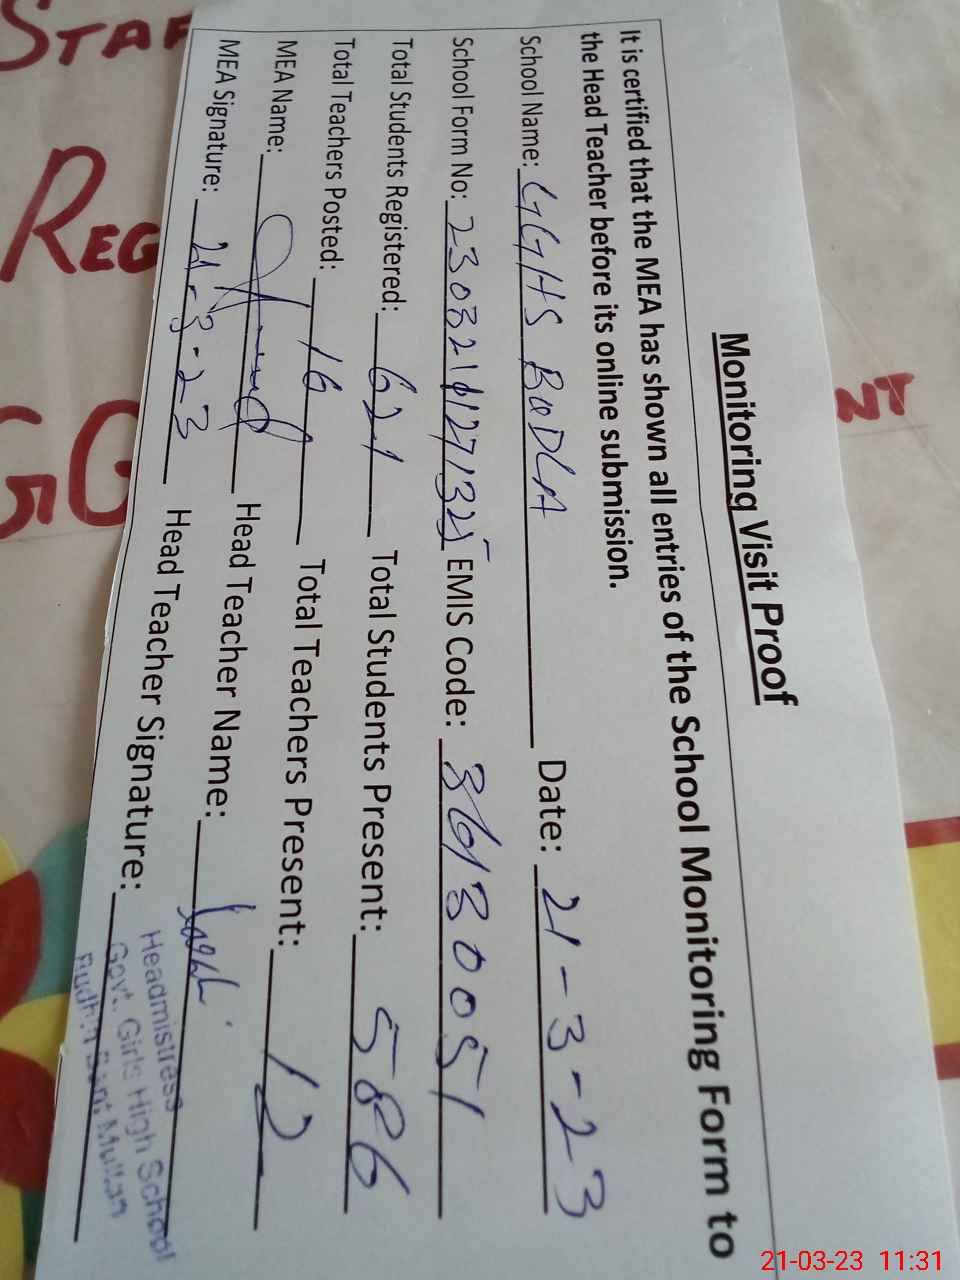 Monitoring Visit Proof
It is certified that the MEA has shown all entries of the School Monitoring Form to
the Head Teacher before its online submission.
School Name: GGHS BODLA Date: 21-3-23
School Form No: EMIS Code: 36130051
Total Students Registered: 621 Total Students Present: 586
Total Teachers Posted: 16 Total Teachers Present: 12
MEA Name: Head Teacher Name:
MEA Signature: 21-3-23 Head Teacher Signature:
Headmistress
Govt. Girls High School
Multan
REG
21-03-23 11:31